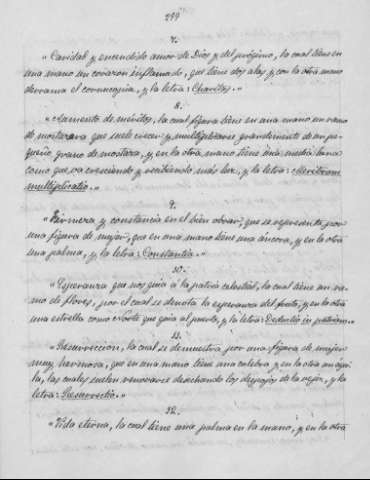 299
7.
"Caridad y encendido amor de Dios y del prógimo, la cual tiene en
una mano un corazon inflamado, que tiene dos alas, y con la otra mano
derrama el cornucopia, y la letra: Charitas."
8.
"Aumento de méritos, la cual figura tiene en una mano un ramo
de mostaza que suele crecer y multiplicarse grandemente de un pe-
queño grano de mostaza, y en la otra mano tiene una media luna
como que va creciendo y recibiendo más luz, y la letra: Meritorum
multiplicatio."
9.
"Firmeza y constancia en el bien obrar, que se representa por
una figura de mujer, que en una mano tiene una áncora, y en la otra
una palma, y la letra: Constantia."
10.
"Esperanza que nos guia á la patria celestial, la cual tiene un ra-
mo de flores, por el cual se denota la esperanza del fruto, y en la otra
una estrella como Norte que guia al puerto, y la letra: Deductio in patriam."
11.
"Resurreccion, la cual se demuestra por una figura de mujer
muy hermosa, que en una mano tiene una culebra y en la otra un águi-
la, las cuales suelen renovarse desechando los despojos de la vejez, y la
letra: Resurrectio."
12.
"Vida eterna, la cual tiene una palma en la mano, y en la otra